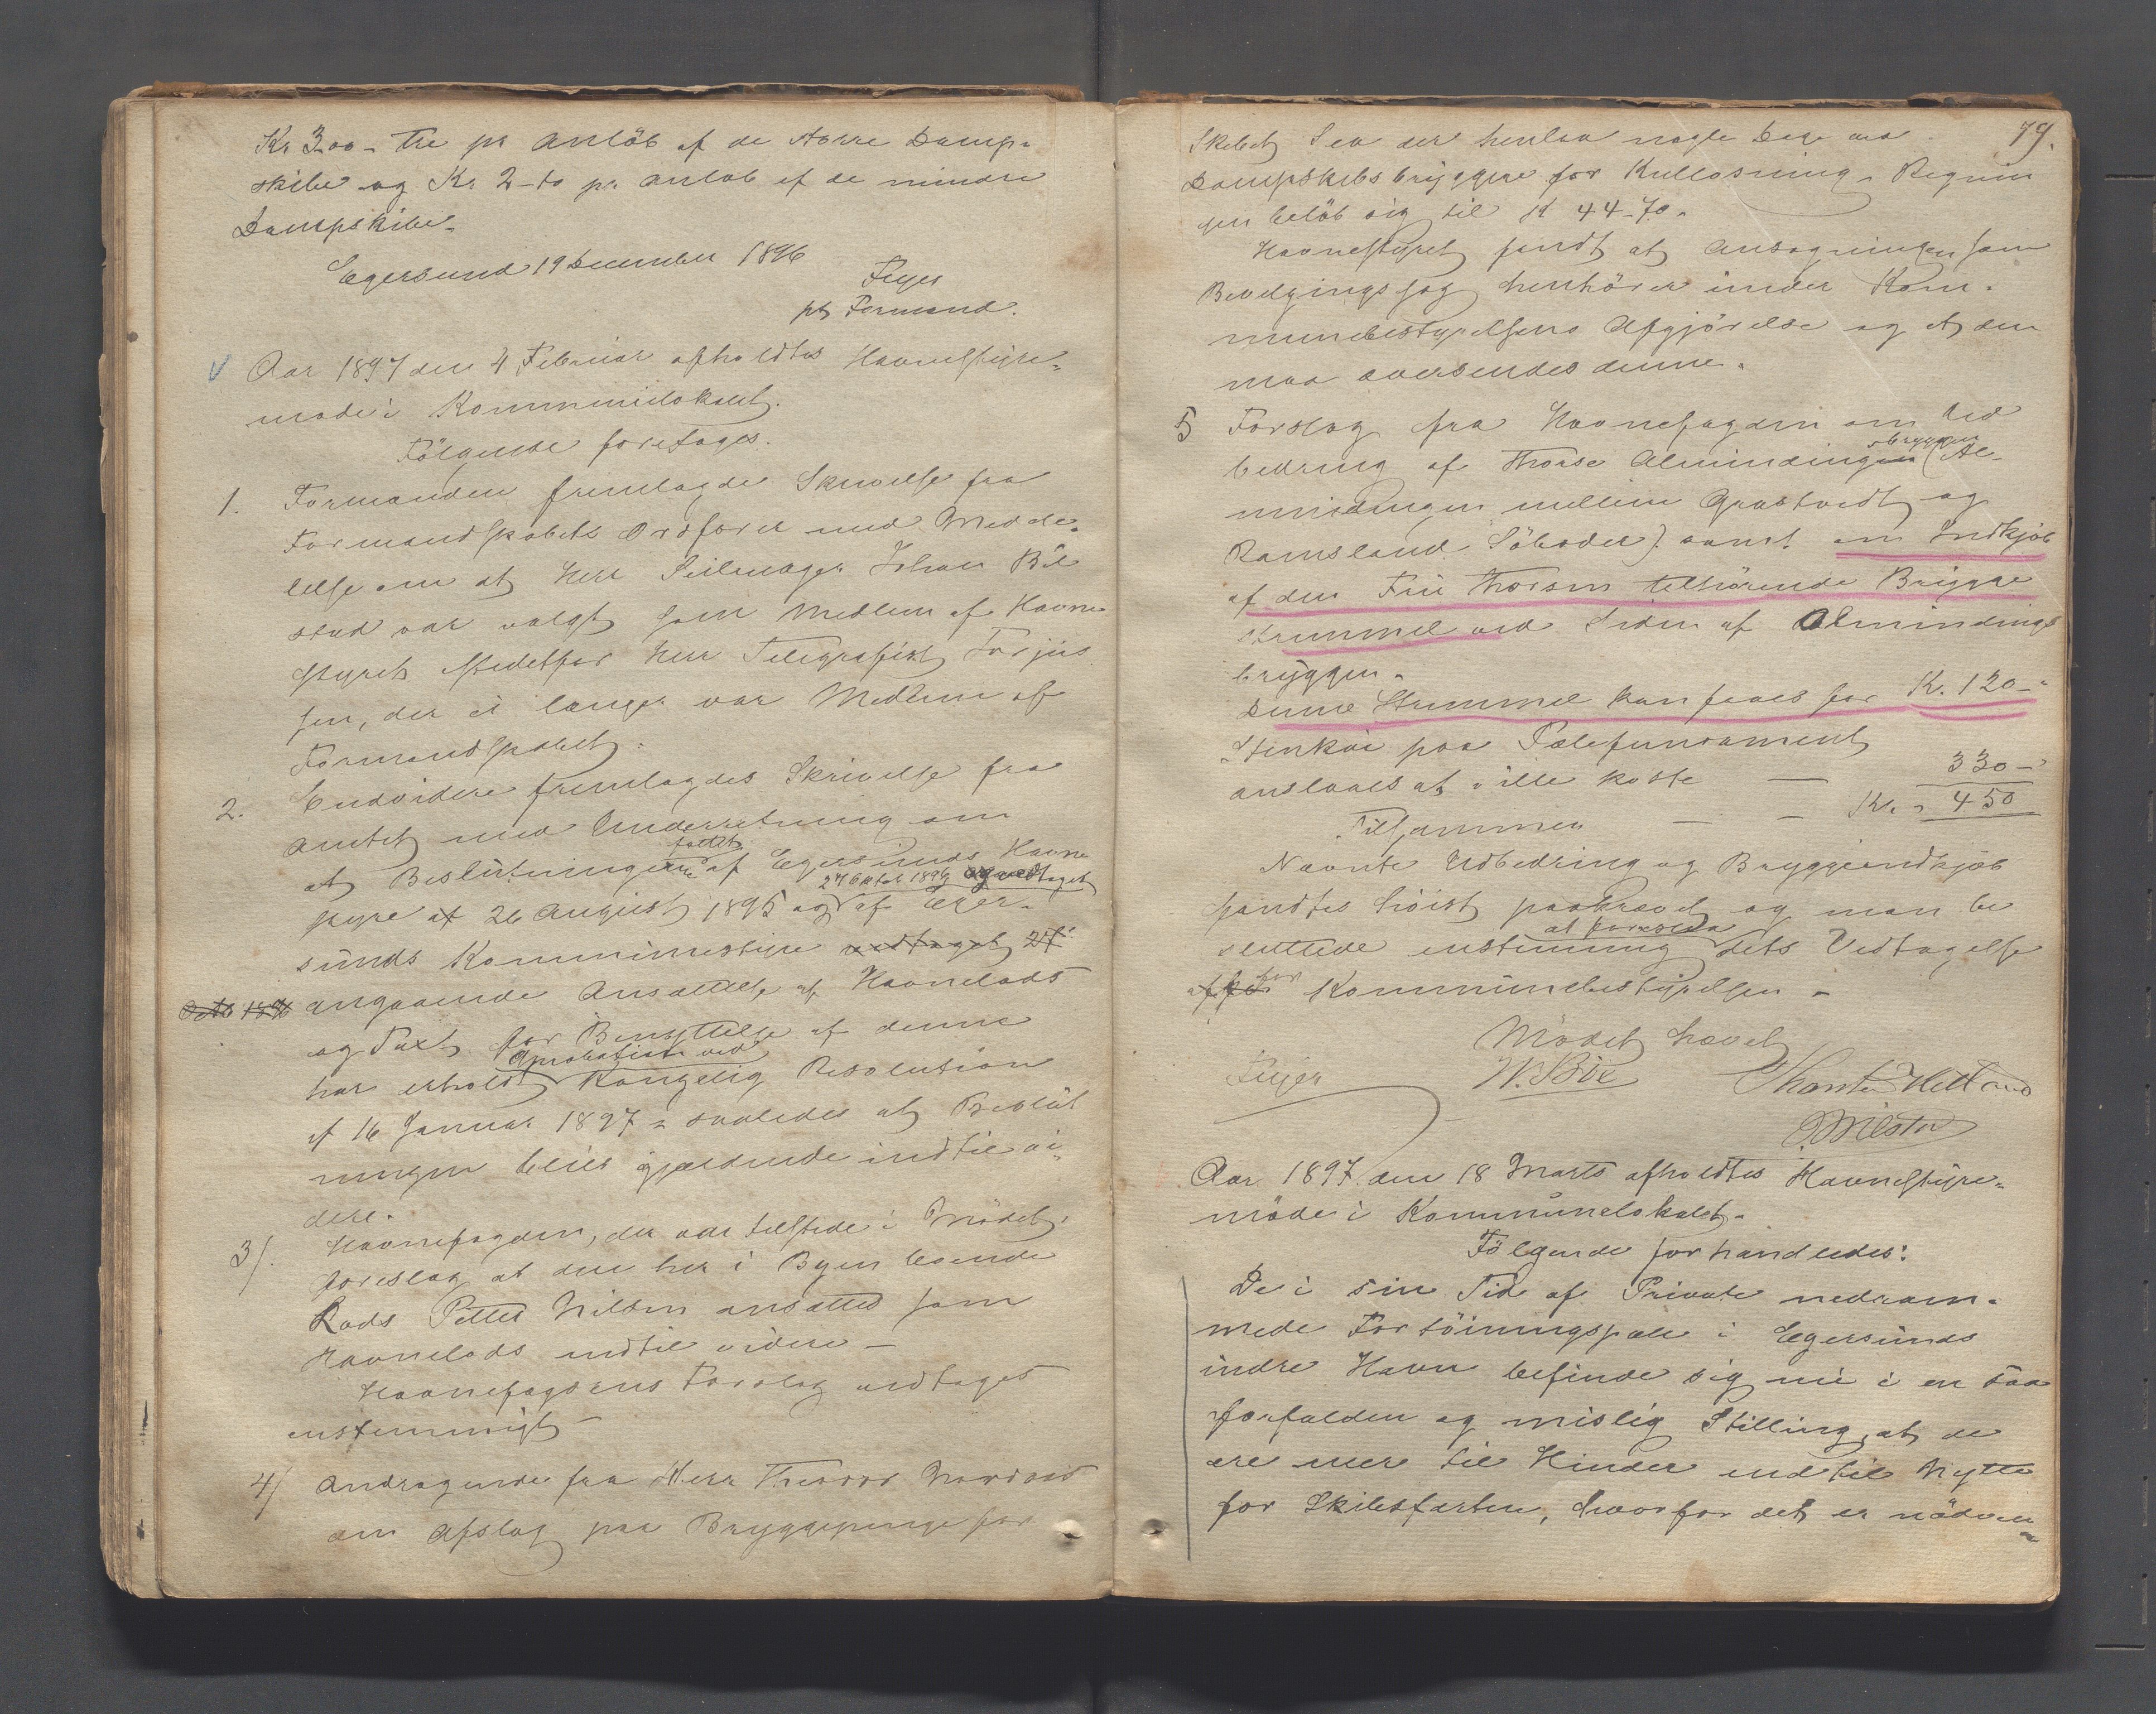 Kr 3.00 - tre pr anlöb af de större Damp-
skibe og Kr. 2 - to pr. anlöb af de mindre
Dampskibe.
Egersund 19 December 1896
Feyer
pt Formand.
Aar 1897 den 4 Februar afholdtes Havnestyre-
möde i Kommunelokalet.
Fölgende foretages.
1. Formanden fremlagde Skrivelse fra
Formandskabets Ordförer med Medde-
lelse om at Herr Seilmager Johan Bil
stad var valgt som Medlem af Havne
styret istedetfor Herr Telegrafist Torjus
sen, der ei længer var Medlem af
Formandskabet.
2. Endvidere fremlagdes Skrivelse fra
Amtet med Underretning om
fattet
at Beslutningen af Egersunds Havne
27 Oktob 1896 vedtaget
styre af 26 August 1895 og af Eger-
sunds Kommunestyre vedtaget 27
Octb 1896 angaaende Ansættelse af Havnelods
og Taxt for Benyttelse af denne
Aprobation ved
har erholdt Kongelig Resolution
af 16 Januar 1897 - saaledes at Beslut
ningen bliver gjældende indtil vi-
dere.
3/. Havnefogden, der var tilstede i Mödet,
foreslog at den her i Byen boende
Lods Petter Nilsen ansættes som
Havnelods indtil videre -
Havnefogdens Forslag vedtages
enstemmigt -
4/ Andragende fra Herr Theodor
om Afslag paa Bryggepenge for
79.
Skibet der henlaa nogle Dage ved
Dampskibsbryggen for Kullosning. Regnin
gen belöb sig til K 44-70.
Havnestyret fandt at Ansögningen som
Bevilgingssag henhörer under Kom-
munebestyrelsens Afgjörelse og at den
maa oversendes denne.
5 Forslag fra Havnefogden om Ud
bryggen
bedring af Almindingen (Al-
mindingen mellem Grastvedt og
Ramsland Söboder) samt om Indkjöb
af den Fru tilhörende Brygge
strummel ved Siden af Almindings
bryggen.
Denne Strummel kan faaes for Kr. 120 -
Stenkai paa Pælefundament
anslaaes at ville koste — 330 -
Tilsammen — - Kr. 450
Nævnte Udbedring og Bryggeindkjöb
fandtes höist paakrævet og man be
at foreslaa
sluttede enstemmig dets Vedtagelse
for
af Kommunebestyrelsen -
Mödet hævet
Feyer W. Böe Thorstein Hetland
Aar 1897 den 18 Marts afholdtes Havnestyre-
möde i Kommunelokalet.
Fölgende forhandledes:
De i sin Tid af Private nedram-
mede Fortöiningspæle i Egersunds
indre Havn befinde sig nu i en saa
forfalden og mislig Stilling, at de
ere mer til Hinder end til Nytte
for Skibsfarten, hvorfor det er nödven-